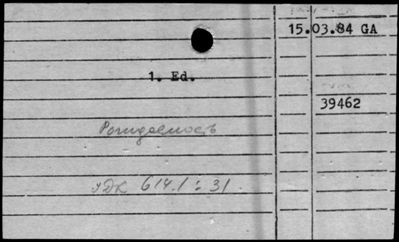 15.03.84 GA
1. Ed.
39462
Рождаемость
УДК 614.1:31